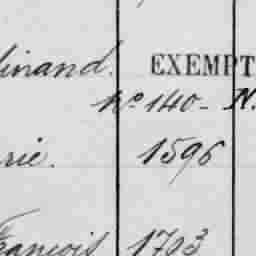 inand. EXEMPT
No 140 - N.
rie. 1596
François 1703